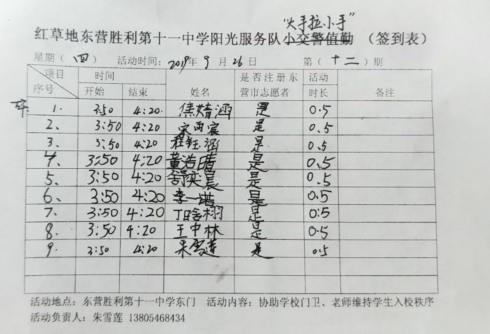 "大手拉小手"
红草地东营胜利第十一中学阳光服务队小交警值勤 (签到表)
星期(四) 活动时间: 2019年9月26日 第(十二)期
项目 序号 时间 开始 结束 姓名 是否注册东营市志愿者 活动时长 备注
1. 3:50 4:20 焦婧涵 是 0.5
2、 3:50 4:20 宋雨宸 是 0.5
3、 3:50 4:20 程钰涵 是 0.5
4、 3:50 4:20 是 0.5
5、 3:50 4:20 是 0.5
6、 3:50 4:20 李一 是 0.5
7、 3:50 4:20 是 0.5
8、 3:50 4:20 王中林 是 0.5
9. 3:50 4:20 朱雪莲 是 0.5
活动地点: 东营胜利第十一中学东门 活动内容: 协助学校门卫、老师维持学生入校秩序
活动负责人: 朱雪莲 13805468434